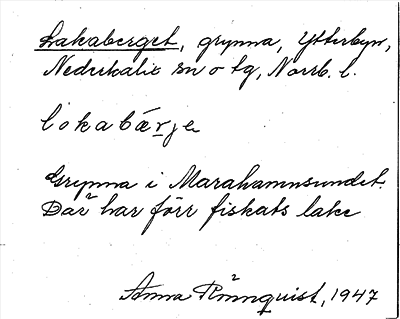 Lakaberget, grynna, Ytterbyn,
Nederkalix sn o tg, Norrb. l.
lokabærje
Grynna i Marahamnsundet.
Där har förr fiskats lake
Anna Rönnquist, 1947